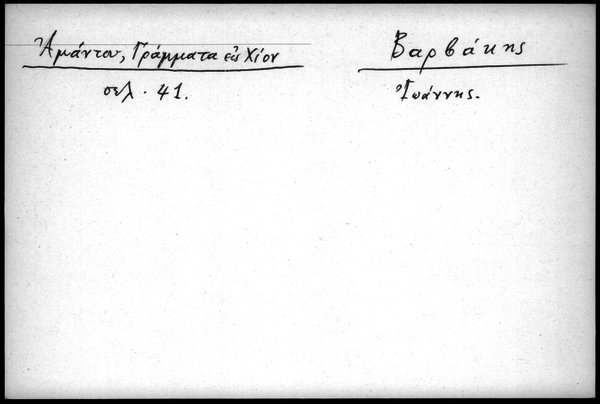 Ἀμάντου, Γράμματα εἰς Χίον
σελ. 41.
Βαρβάκης
Ἰωάννης.